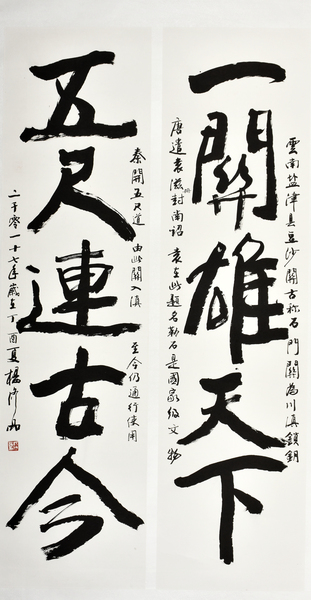 一關雄天下
雲南盐津县豆沙關古称石門關為川滇鎖鑰
唐遣袁滋封南诏 袁至此題名勒石是國家级文物
五尺連古今
秦開五尺道 由此關入滇 至今仍通行使用
二千零一十七年歲至丁酉夏楊